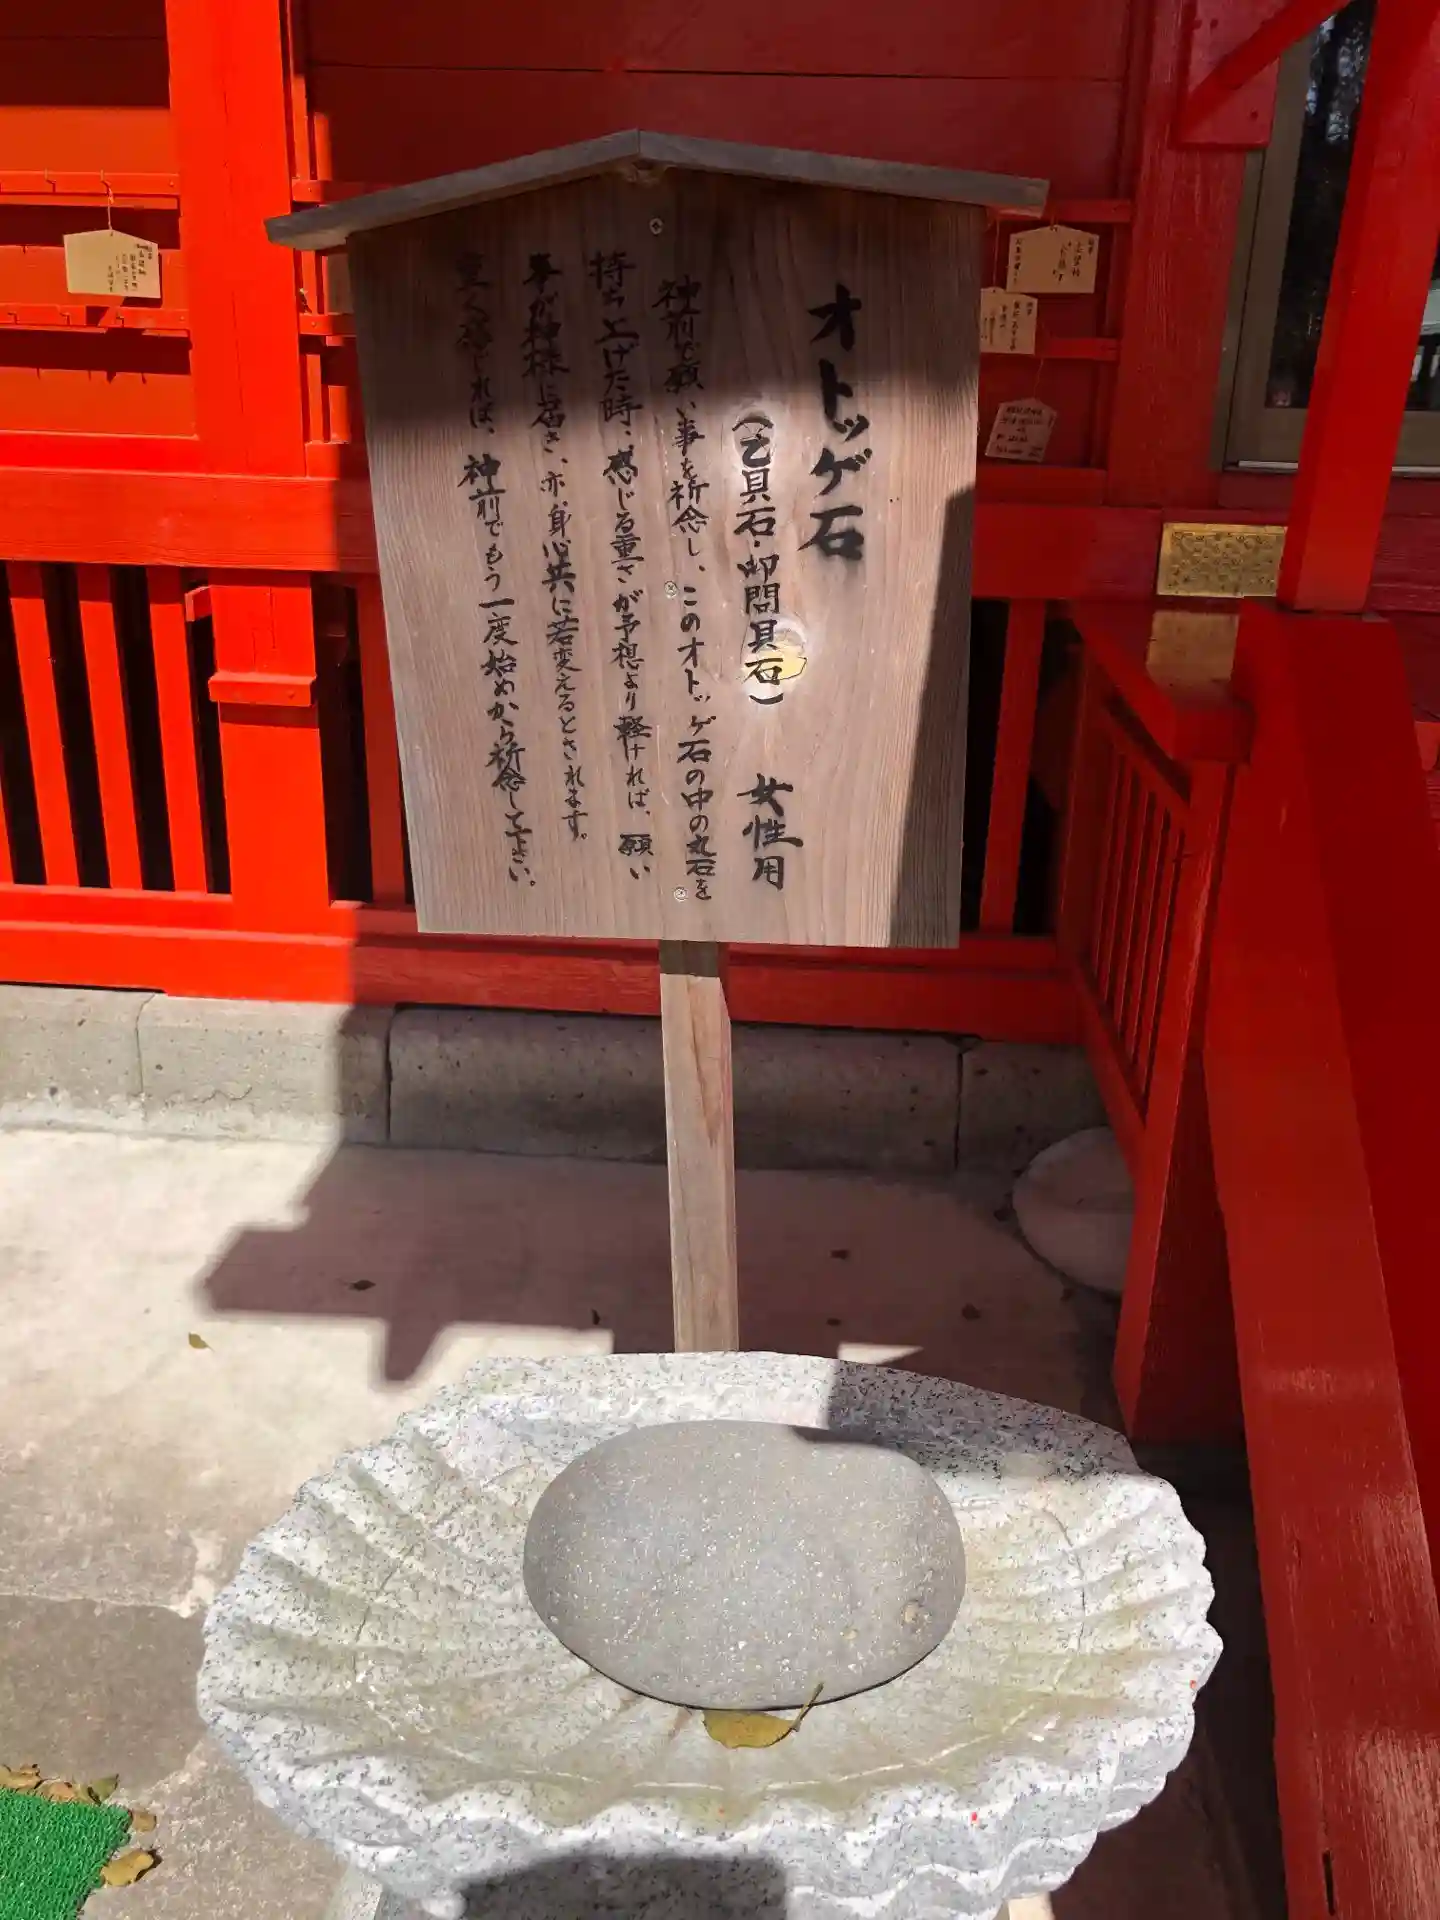 オトッゲ石
（乙貝石・御問貝石）　女性用
神前で願い事を祈念し、このオトッゲ石の中の丸石を
持ち上げた時、感じる重さが予想より軽ければ、願い
事が神様に届き、亦、身心共に若変えるとされます。
重く感じれば、神前でもう一度始めから祈念して下さい。